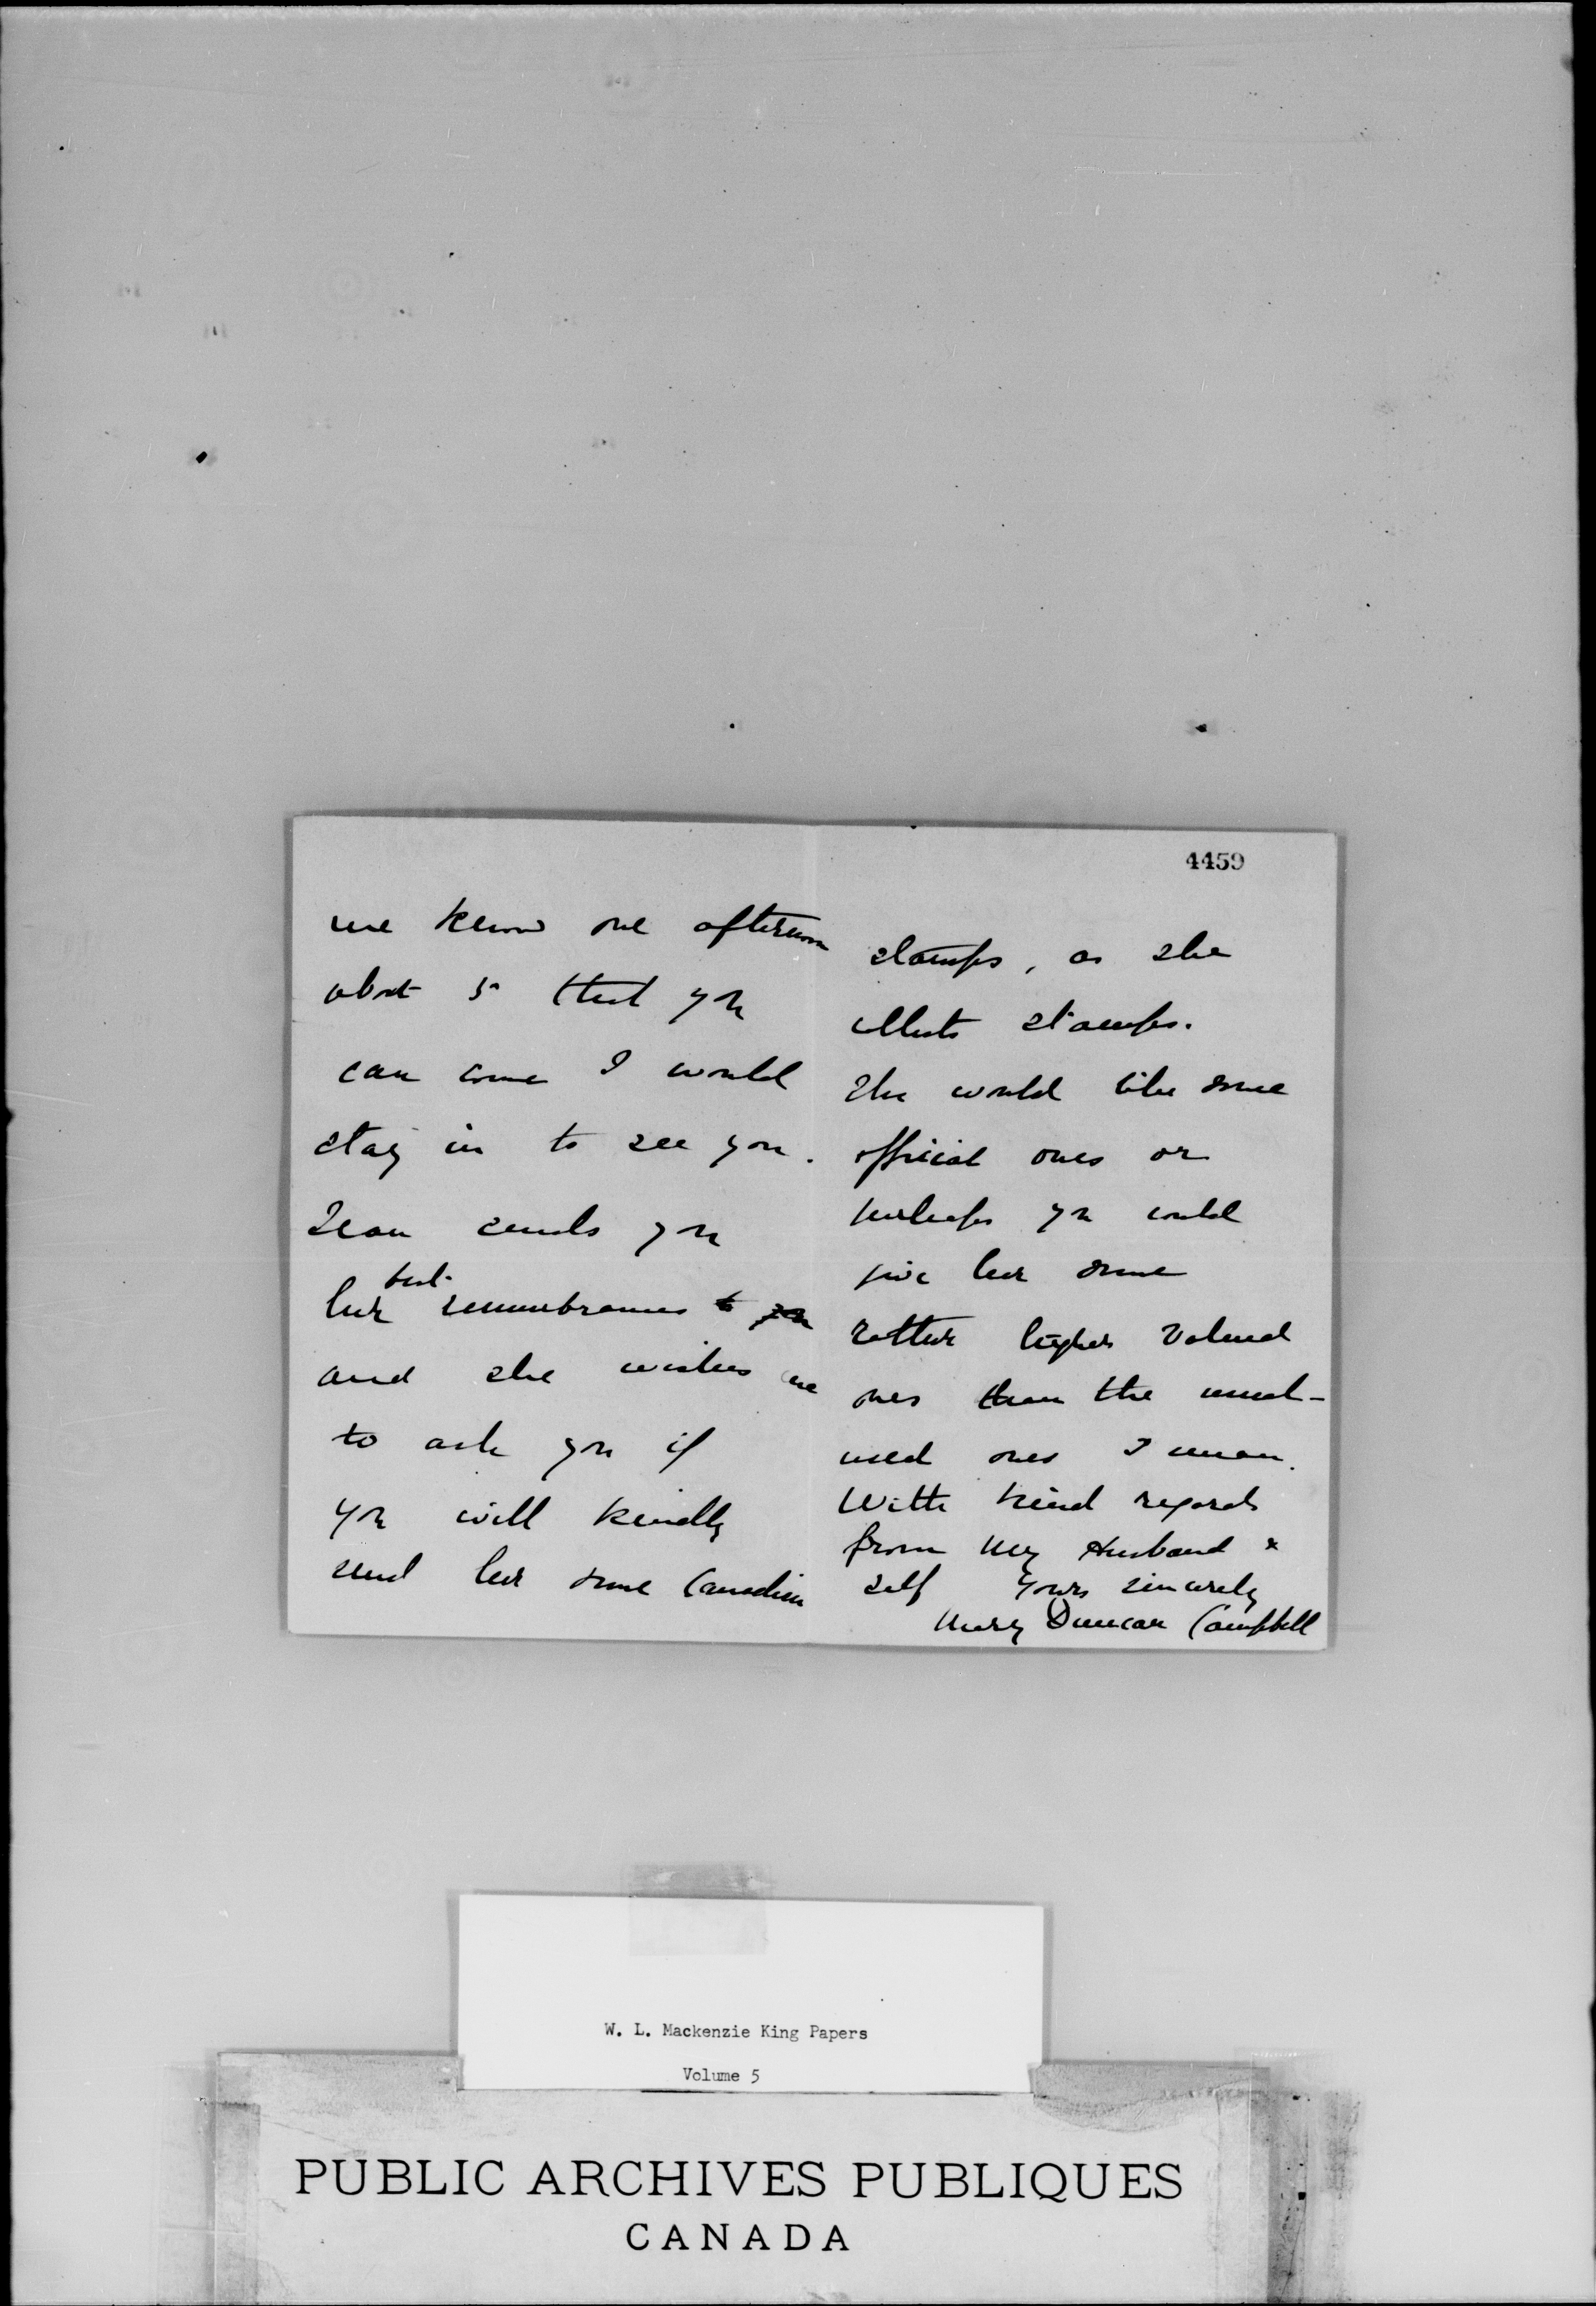 me know one afternoon
about 5 that you
can come I would
stay in to see you.
Jean sends you
best
her remembrances to you
and she wishes me
to ask you if
you will kindly
send her some Canadian
4459
stamps, as she
collects stamps.
She would like some
official ones or
perhaps you could
give her some
rather higher valued
ones than the usual -
used ones I mean.
With kind regards
from my Husband &
self Yours sincerely
Mary Duncan Campbell
W. L. Mackenzie King Papers
Volume 5
PUBLIC ARCHIVES PUBLIQUES
CANADA